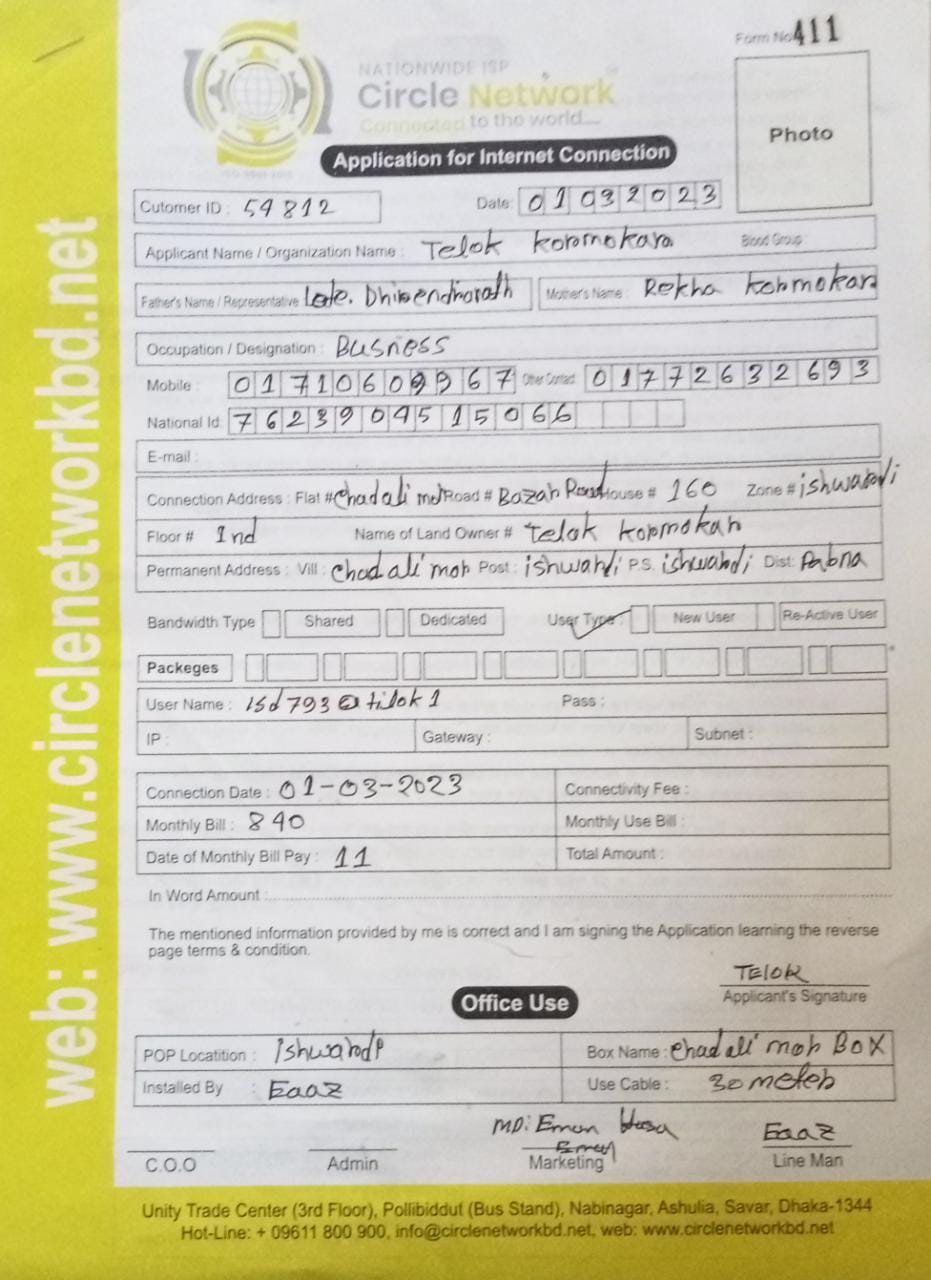 Form No 411
NATIONWIDE ISP
Circle Network
Connected to the world....
Photo
Application for Internet Connection
Cutomer ID : 54812 Date: 01032023
Applicant Name / Organization Name : Telok kormokara Blood Group :
Father's Name / Representative Late. Dhirendhorath Mother's Name : Rekha kormokara
Occupation / Designation : Busness
Mobile : 01710609967 Other Contact : 01772632693
National Id: 7623904515066
E-mail :
Connection Address : Flat # Chadali mor Road # Bazar Road House # 160 Zone # ishwardi
Floor # 1nd Name of Land Owner # Telok kormokar
Permanent Address : Vill : Chadali mor Post : ishwardi P.S. ishwardi Dist: Pabna
Bandwidth Type Shared Dedicated User Type : New User Re-Active User
Packeges
User Name : isd793@tilok1 Pass :
IP : Gateway : Subnet :
Connection Date : 01-03-2023 Connectivity Fee :
Monthly Bill : 840 Monthly Use Bill :
Date of Monthly Bill Pay : 11 Total Amount :
In Word Amount :
The mentioned information provided by me is correct and I am signing the Application learning the reverse
page terms & condition.
TElOK
Applicant's Signature
Office Use
POP Locatition : Ishwardi Box Name : Chadali mor BOX
Installed By : Eaaz Use Cable : 30 meter
MD: Eman Eaaz
C.O.O Admin Marketing Line Man
Unity Trade Center (3rd Floor), Pollibiddut (Bus Stand), Nabinagar, Ashulia, Savar, Dhaka-1344
Hot-Line: + 09611 800 900, info@circlenetworkbd.net, web: www.circlenetworkbd.net
web: www.circlenetworkbd.net